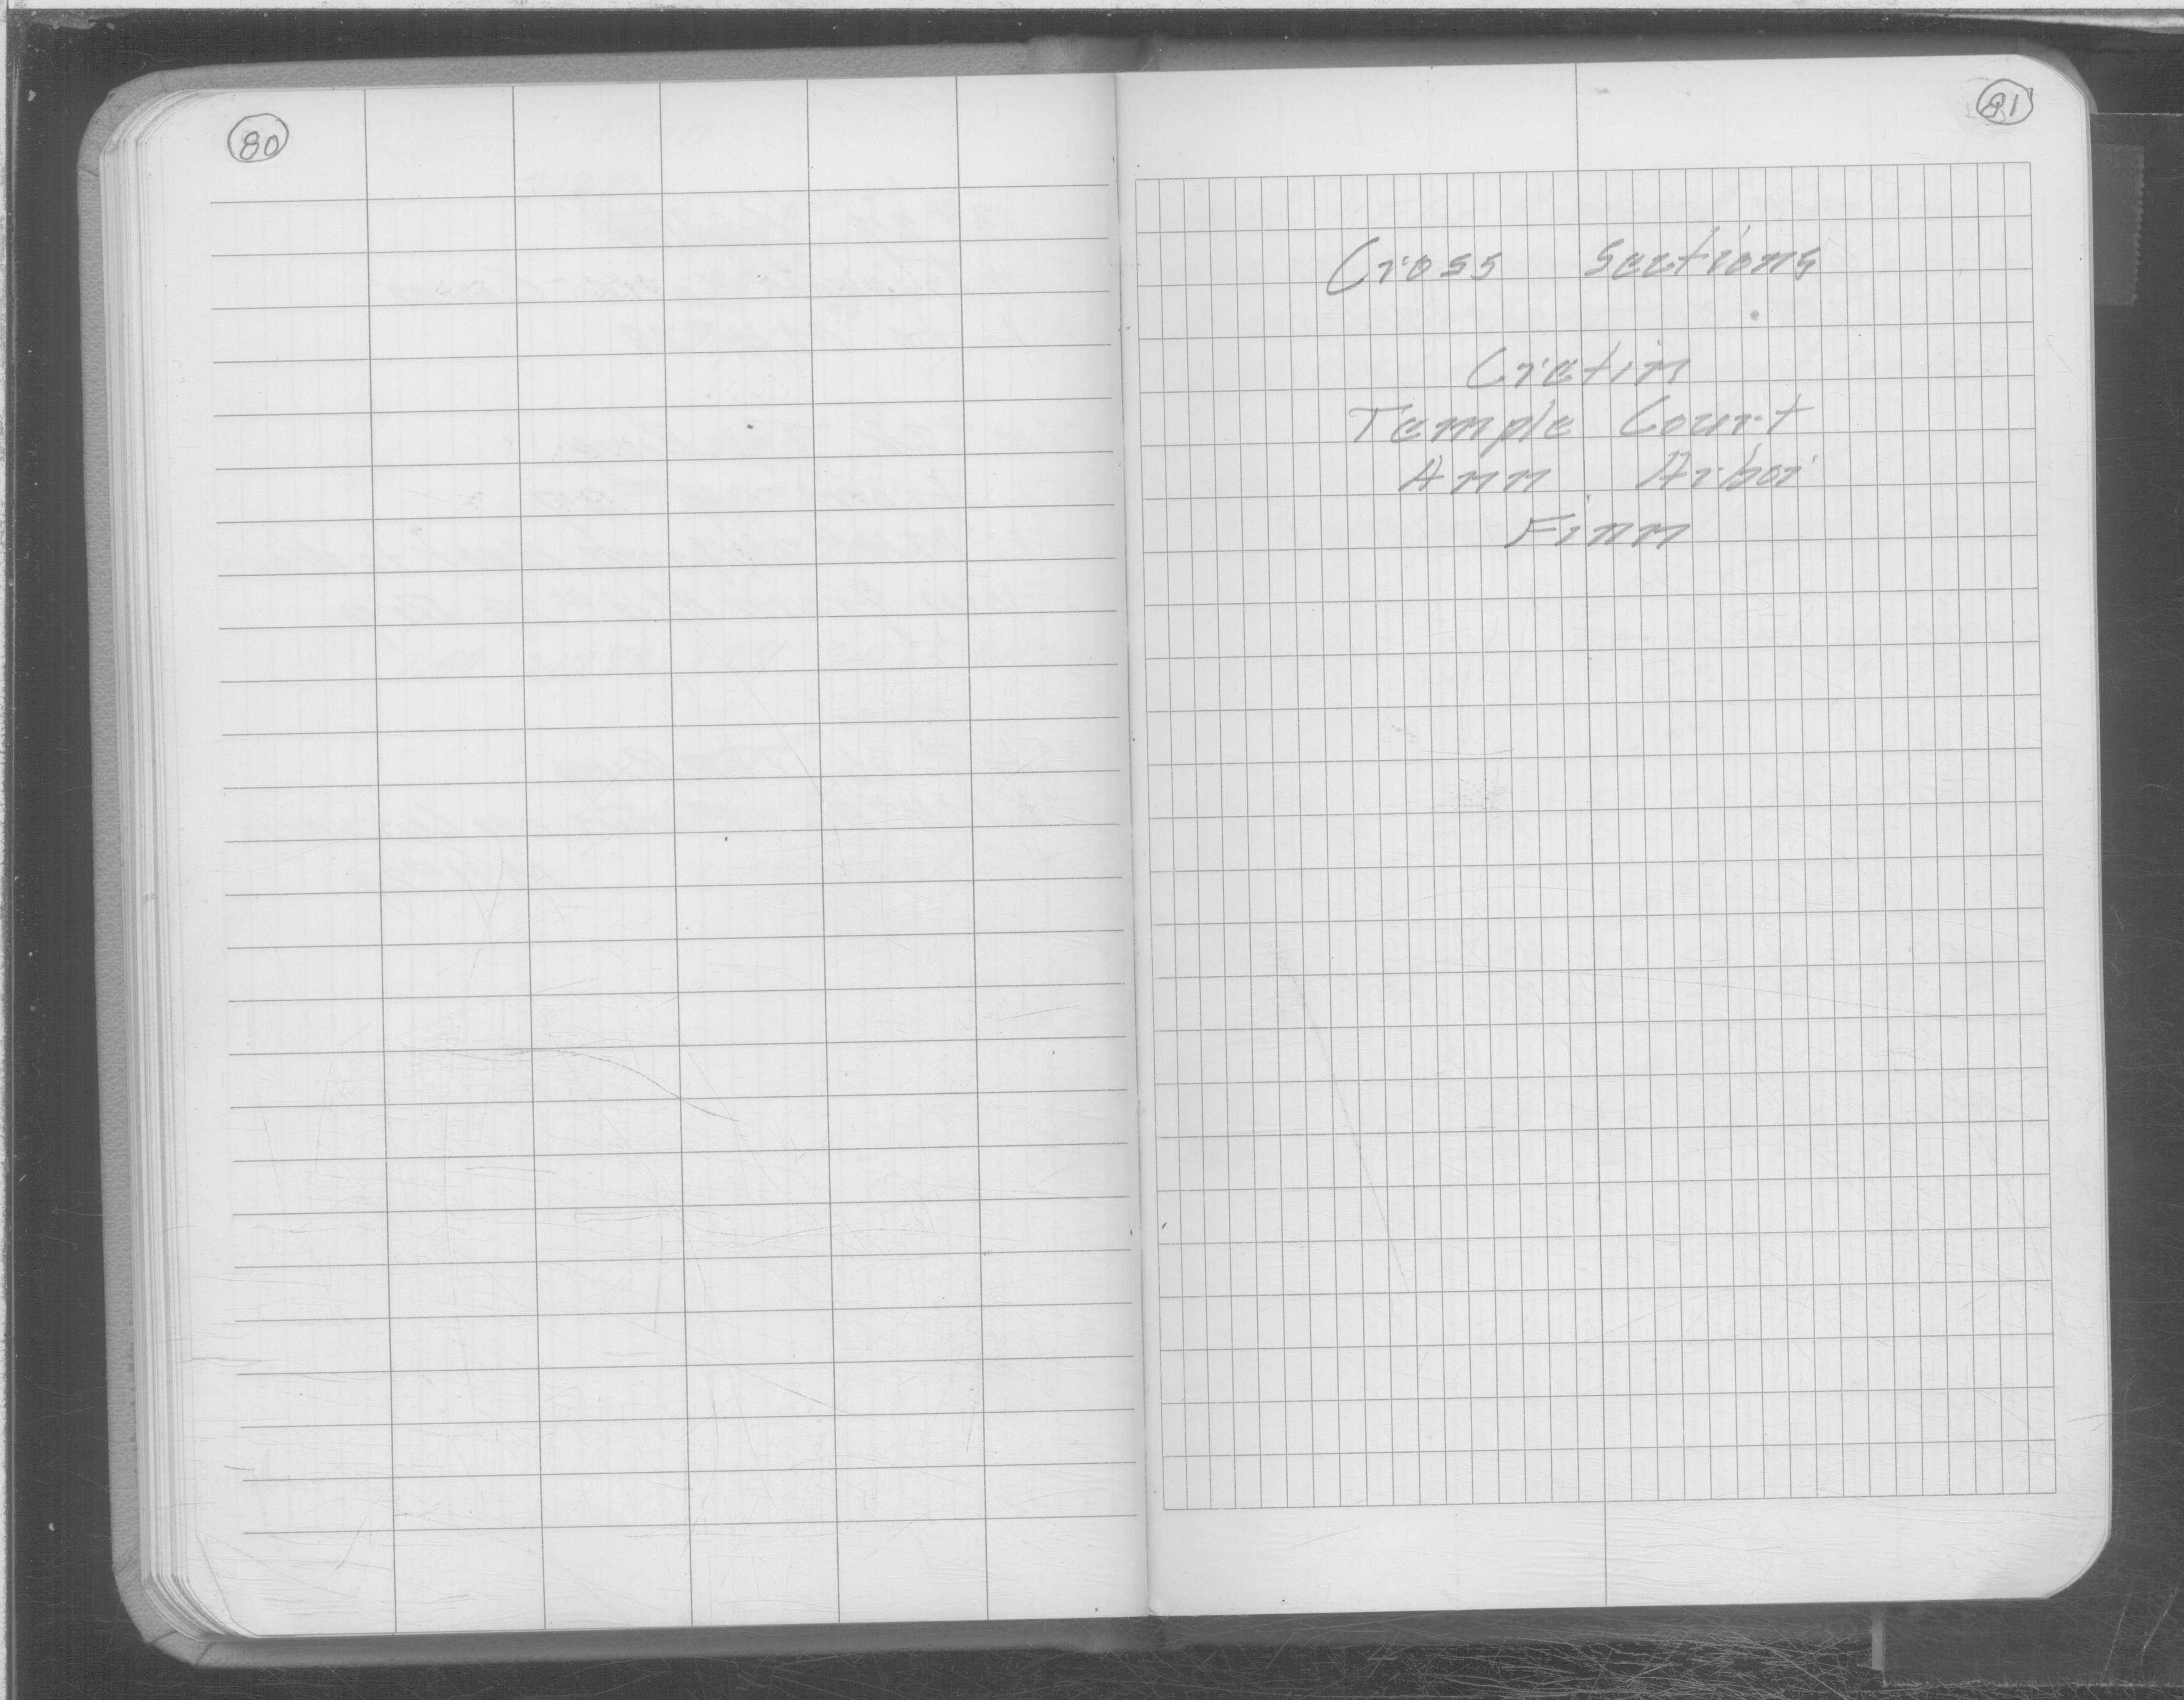 80
81
Cross Sections
Cretin
Temple Court
Ann Arbor
Finn